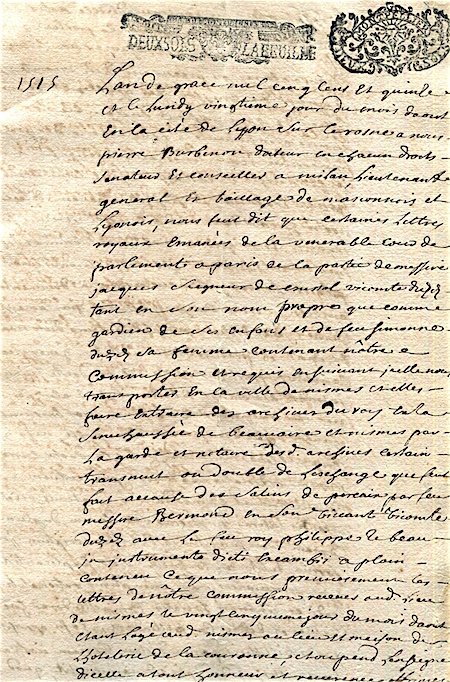 DEUX SOLS LA FEUILLE
1515
Lan de grace mil cinq cens Et quinze
et le Lundy vingtieme jour du mois daoust
En la cité de Lyon sur le rosne a nous
pierre Burbenon docteur en chacun droits
senateur Et conseiller a milan, Lieutenant
general Es bailliage de masconnois et
Lyonois, nous feut dit que certaines Lettres
royaux Emanées de la venerable Cour de
parlement a paris de la partie de messire
jacques Seigneur de crussol vicomte duzez
tant en son nom propre que comme
gardien de ses enfans et de feu simonne
duzez sa femme contenant nôtre
Commission et requis en suivant icelle nous
transporter En la ville de nismes et illec
faire Extraire des archives du roy en la
Senechaussée de beaucaire et nismes par
La garde et notaire desd. archives certain
transumt ou double de Leschange que feut
fait a cause des salins de pecais par feu
messire Bermond en son vivant vicomte
duzez avec Le feu roy philippe le beau
jn jnstrumento dicti Excambij a plain
contenu Ce que nous premierement les
lettres de nôtre commission receues aud. Lieu
de nismes le vingt cinquieme jour du mois daoust
Etant Logé aud. nismes au lieu et maison de
Lhotelerie de la couronne, et
dicelle a tout honneur et reverence